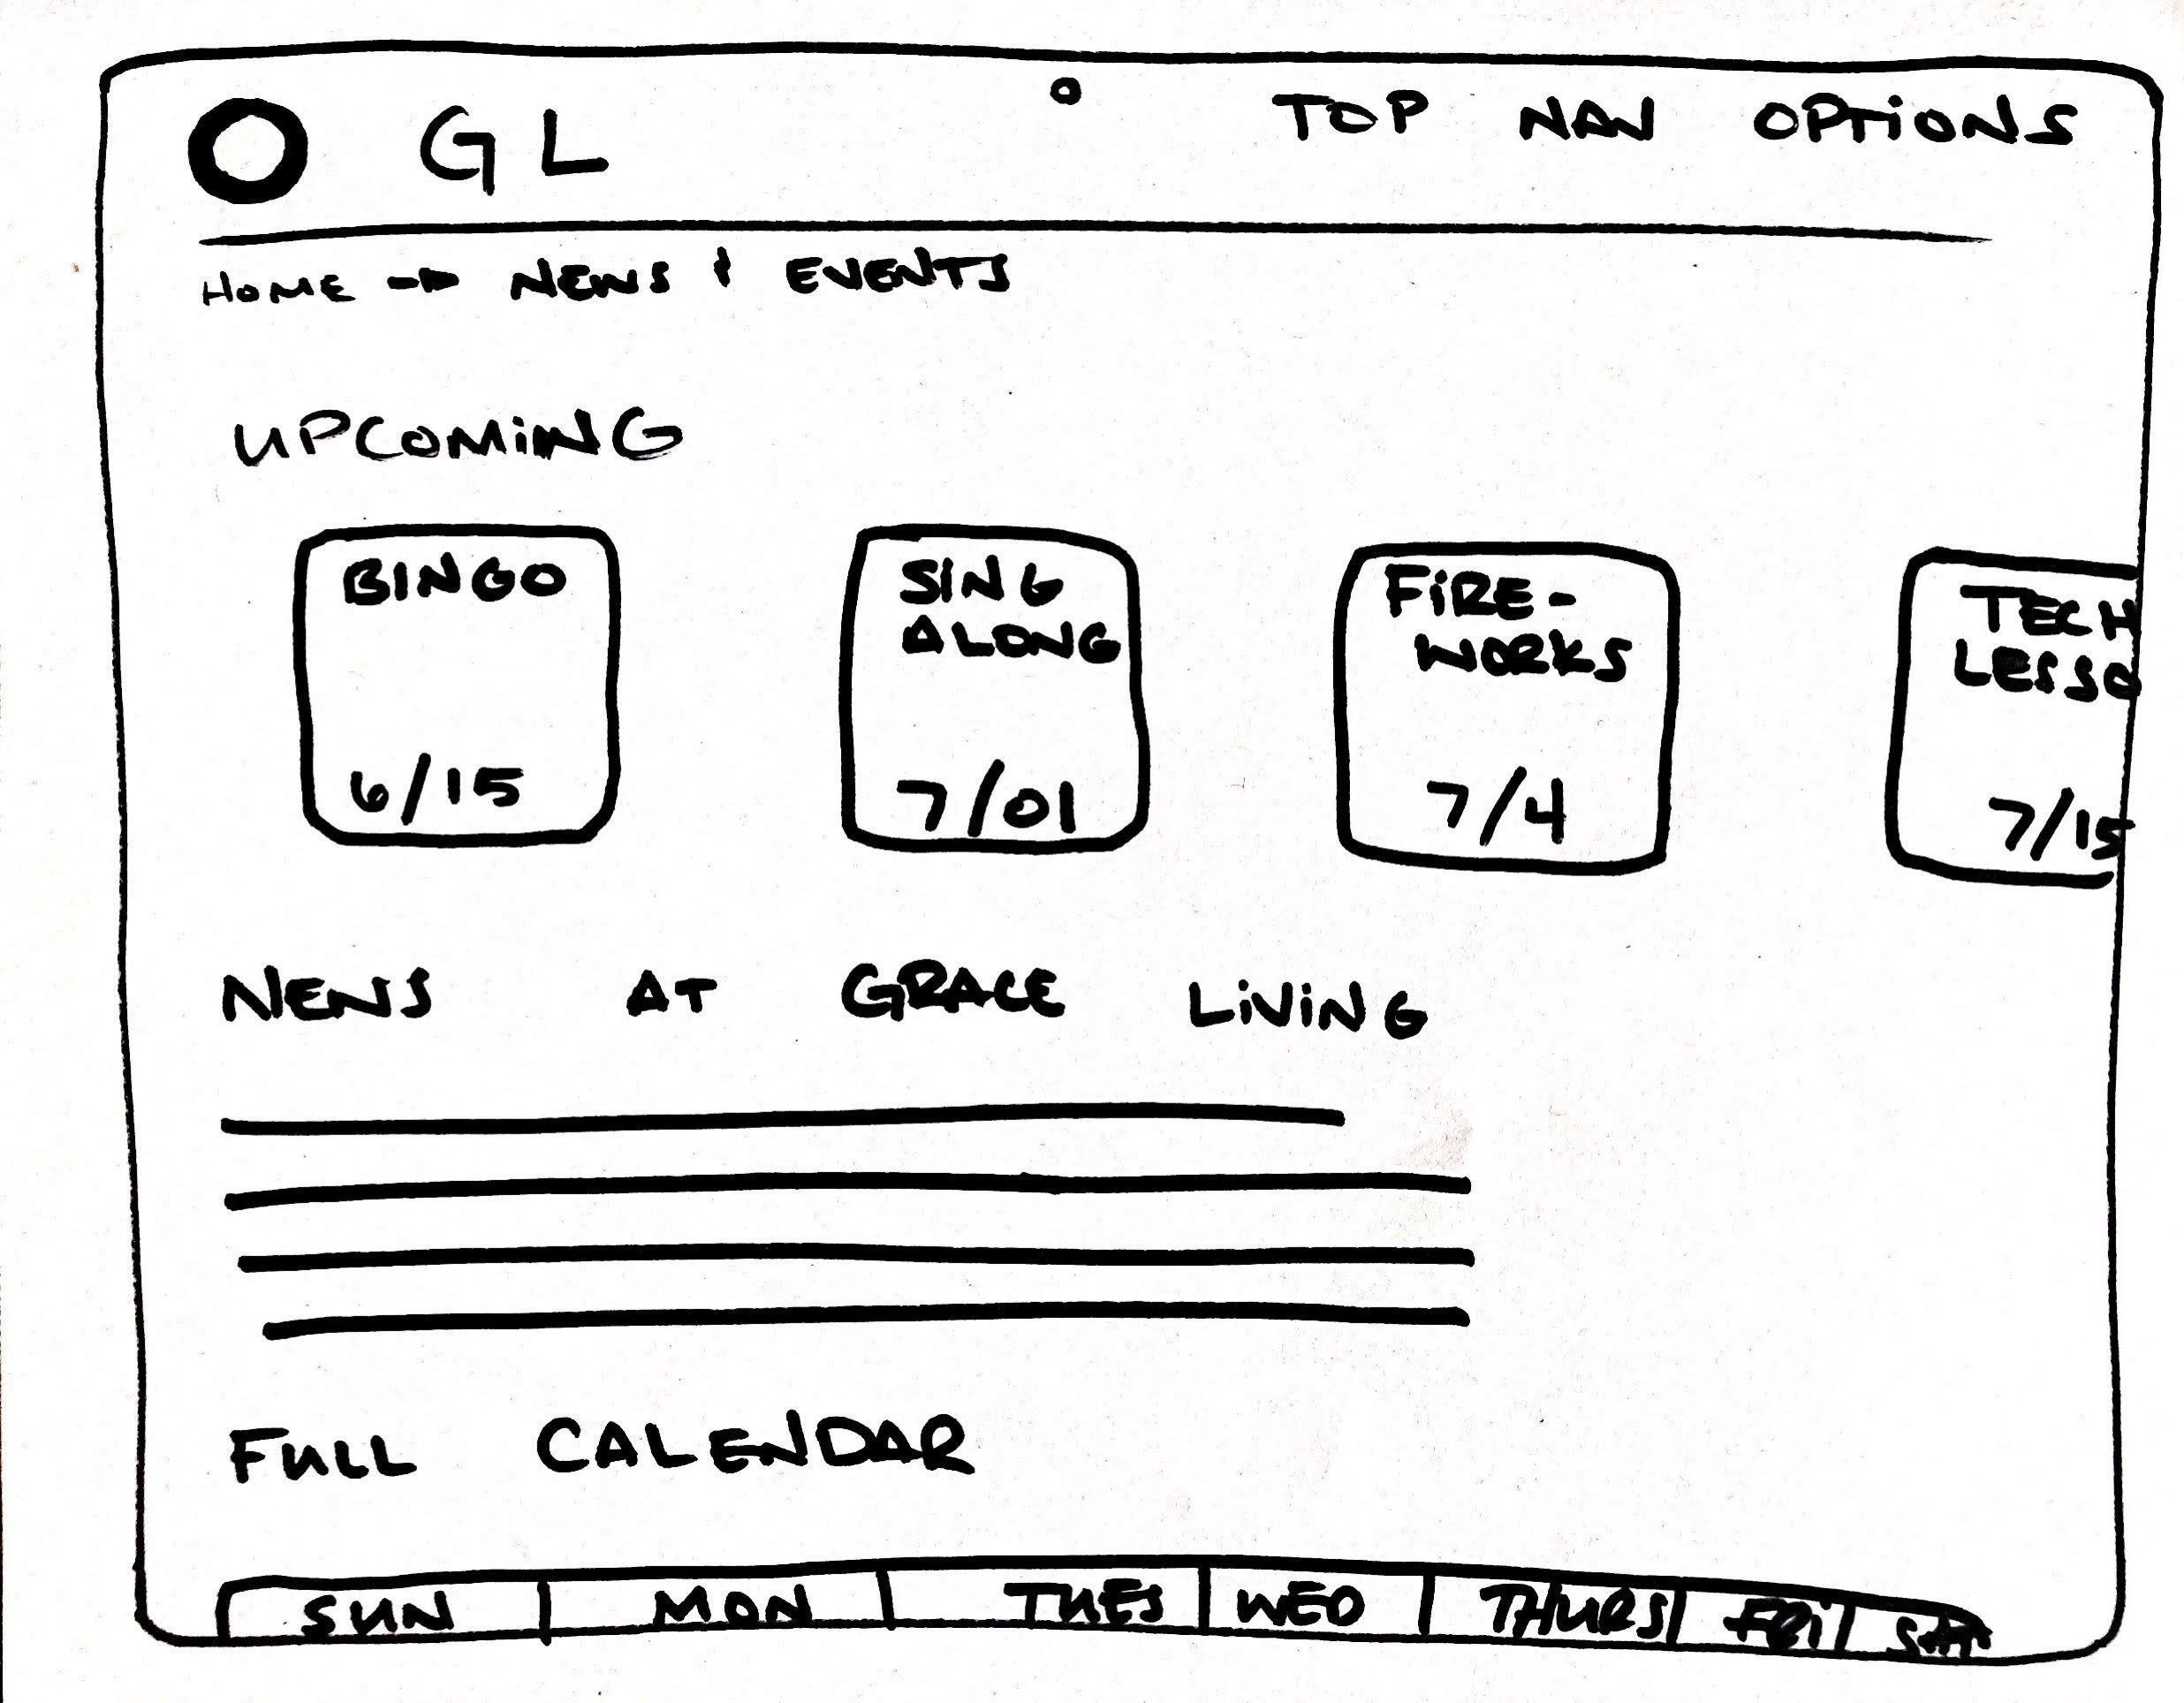 GL
TOP NAV OPTIONS
HOME → NEWS & EVENTS
UPCOMING
BINGO
6/15
SING
ALONG
7/01
FIRE-
WORKS
7/4
TECH
LESSO
7/15
NEWS AT GRACE LIVING
FULL CALENDAR
SUN MON TUES WED THURS FRI SAT